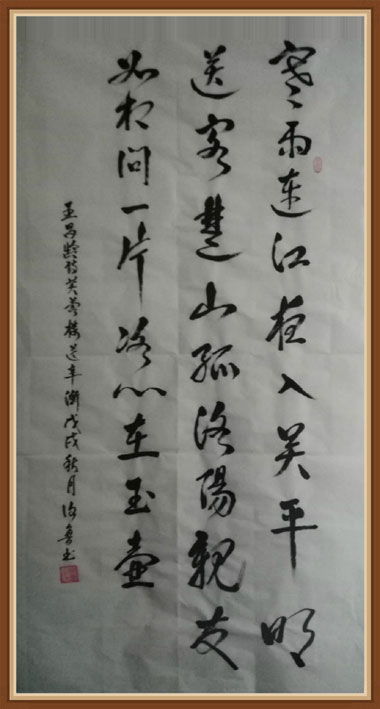 寒雨连江夜入吴平明
送客楚山孤洛陽親友
如相问一片冰心在玉壶
王昌龄诗芙蓉楼送辛渐戊戌秋月海鲁书